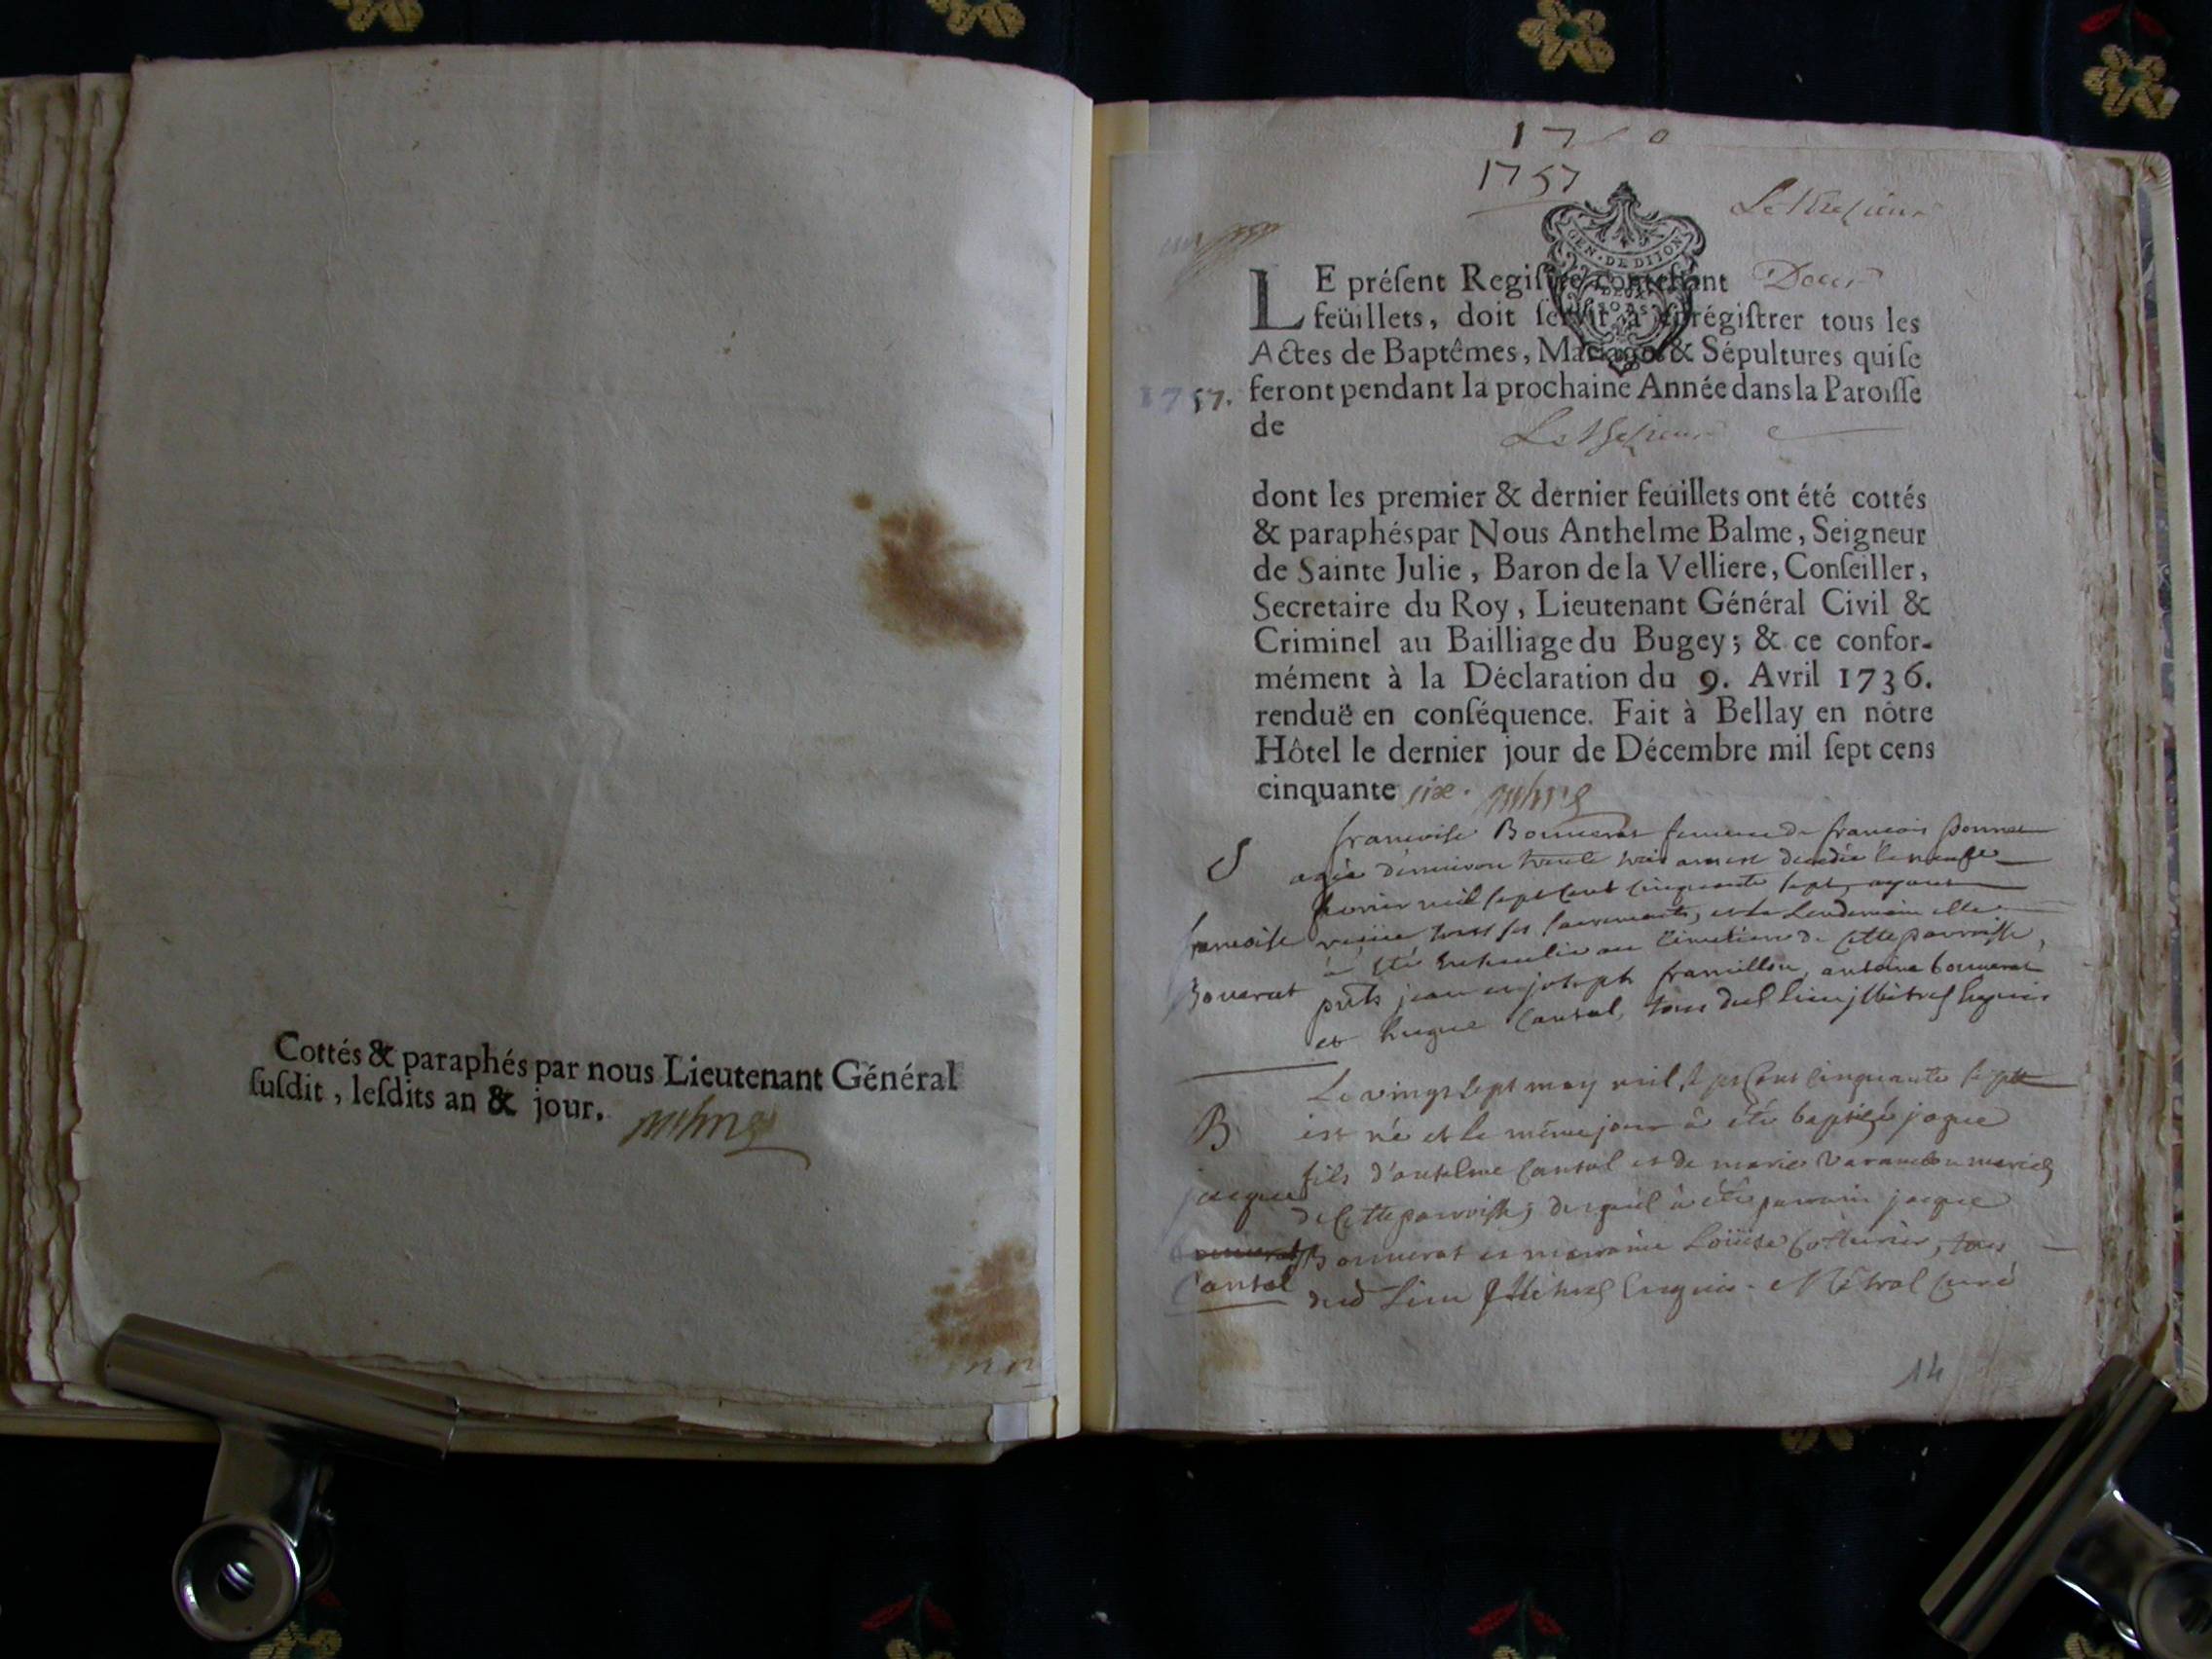 Cottés & paraphés par nous Lieutenant Général
ſuſdit, leſdits an & jour.
1757
GEN · DE DIJON
DEUX
SOLS
LE préſent Regiſtre contenant Deux
feüillets, doit ſervir à enrégiſtrer tous les
Actes de Baptêmes, Mariages & Sépultures qui ſe
1757. feront pendant la prochaine Année dans la Paroiſſe
de
dont les premier & dernier feüillets ont été cottés
& paraphés par Nous Anthelme Balme, Seigneur
de Sainte Julie, Baron de la Velliere, Conſeiller,
Secretaire du Roy, Lieutenant Général Civil &
Criminel au Bailliage du Bugey; & ce confor-
mément à la Déclaration du 9. Avril 1736.
renduë en conſéquence. Fait à Bellay en nôtre
Hôtel le dernier jour de Décembre mil ſept cens
cinquante six.
françoise Bonnerat femme de françois
S agée d'environ trente trois ans est decedée le neufe
fevrier mil sept cent cinquante sept, ayant
françoise reçüe tous ses sacrements, et le lendemain elle
à été enhumlie au cimetiere de cette parroisse,
Boverat pnts jean et joseph framillon, antoine bonnerat
et hugue Cantal, tous dud lieu illitrés enquis
Le vingt sept may mil sept cent cinquante sept
B est né et le même jour à été baptisé jaque
fils d'antelme Cantal et de marie Varambon mariés
jacque de cette parroisse, duquel à été parrain jacque
Bonnerat et marraine Loüise, tous
Cantal dud Lieu illitrés enquis. Métral curé
14